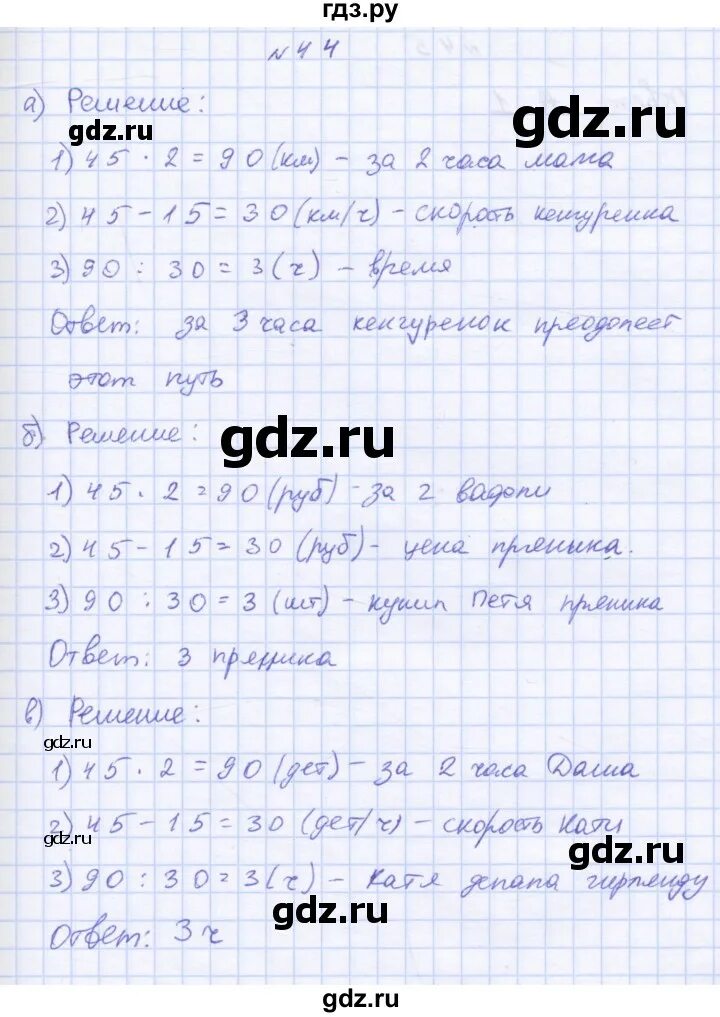 гдз.ру
№44
а) Решение:
gdz.ru
gdz.ru
1) 45 · 2 = 90 (км) – за 2 часа мама
2) 45 – 15 = 30 (км/ч) – скорость кенгуренка
3) 90 : 30 = 3 (ч) – время
Ответ: за 3 часа кенгуренок преодолеет
gdz.ru
gdz.ru
этот путь
б) Решение:
gdz.ru
1) 45 · 2 = 90 (руб) – за 2 вафли
2) 45 – 15 = 30 (руб) – цена пряника.
3) 90 : 30 = 3 (шт) – купил Петя пряника
Ответ: 3 пряника
в) Решение:
gdz.ru
gdz.ru
1) 45 · 2 = 90 (дет) – за 2 часа Даша
2) 45 – 15 = 30 (дет/ч) – скорость Кати
gdz.ru
gdz.ru
3) 90 : 30 = 3 (ч) – Катя делала гирлянду
gdz.ru
Ответ: 3 ч
gdz.ru